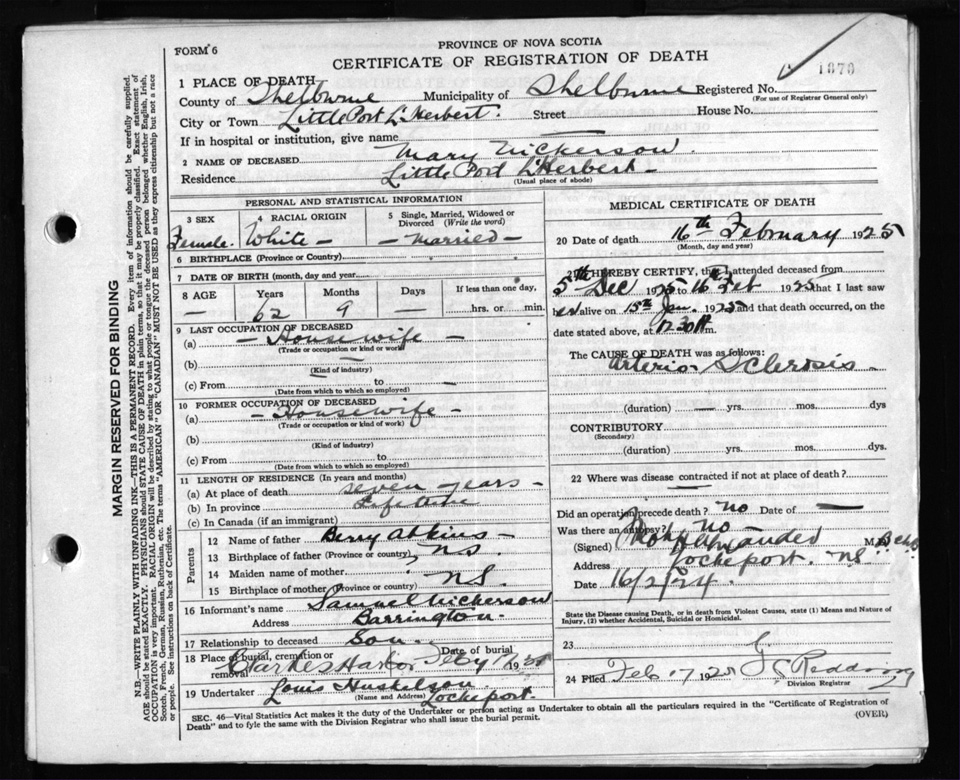 PROVINCE OF NOVA SCOTIA
FORM 6
CERTIFICATE OF REGISTRATION OF DEATH
1879
1 PLACE OF DEATH
County of Shelburne Municipality of Shelburne Registered No.
(For use of Registrar General only)
City or Town Little Port L'Herbert. Street House No.
If in hospital or institution, give name —
2 NAME OF DECEASED Mary Nickerson.
Residence Little Port L'Herbert —
(Usual place of abode)
PERSONAL AND STATISTICAL INFORMATION
3 SEX 4 RACIAL ORIGIN 5 Single, Married, Widowed or Divorced (Write the word)
Female. White — — Married —
6 BIRTHPLACE (Province or Country)
7 DATE OF BIRTH (month, day and year)
8 AGE Years Months Days If less than one day,
— 62 9 — hrs. or min.
9 LAST OCCUPATION OF DECEASED
(a) — House wife —
(Trade or occupation or kind of work)
(b) —
(Kind of industry)
(c) From to —
(Date from which to which so employed)
10 FORMER OCCUPATION OF DECEASED
(a) — Housewife —
(Trade or occupation or kind of work)
(b)
(Kind of industry)
(c) From to
(Date from which to which so employed)
11 LENGTH OF RESIDENCE (In years and months)
(a) At place of death seven years —
(b) In province Life time
(c) In Canada (if an immigrant)
Parents
12 Name of father Berry Atkins —
13 Birthplace of father (Province or country) NS.
14 Maiden name of mother ?
15 Birthplace of mother (Province or country) NS.
16 Informant's name Samuel Nickerson
Address Barrington
17 Relationship to deceased Son.
18 Place of burial, cremation or removal Clarkes Harbor Date of burial Feby 19
19 Undertaker Louis
(Name and Address) Lockeport.
MEDICAL CERTIFICATE OF DEATH
20 Date of death 16th February 1925
(Month, day and year)
21 I HEREBY CERTIFY, that I attended deceased from
5th Dec 1925 to 16th Feb 1925 that I last saw
her alive on 15th Jan. 1925 and that death occurred, on the
date stated above, at 12.30 m.
The CAUSE OF DEATH was as follows:
Arterio-Sclerosis —
(duration) — yrs. mos. dys
CONTRIBUTORY
(Secondary)
(duration) yrs. mos. dys.
22 Where was disease contracted if not at place of death?
—
Did an operation precede death? no Date of —
Was there an autopsy? no —
(Signed) M.D.
Address Lockeport. NS.
Date 16/2/24.
State the Disease causing Death, or in death from Violent Causes, state (1) Means and Nature of Injury, (2) whether Accidental, Suicidal or Homicidal.
23
24 Filed Feb 17 192 Redding
Division Registrar
SEC. 46—Vital Statistics Act makes it the duty of the Undertaker or person acting as Undertaker to obtain all the particulars required in the "Certificate of Registration of
Death" and to fyle the same with the Division Registrar who shall issue the burial permit.
(OVER)
MARGIN RESERVED FOR BINDING
N.B.—WRITE PLAINLY WITH UNFADING INK—THIS IS A PERMANENT RECORD. Every item of information should be carefully supplied.
AGE should be stated EXACTLY. PHYSICIANS should STATE CAUSE OF DEATH in plain terms, so that it may be properly classified. Exact statement of
OCCUPATION is very important. RACIAL ORIGIN will be described by stating to what people or tongue the deceased person belonged whether English, Irish,
Scotch, French, German, Russian, Ruthenian, etc. The terms "AMERICAN" OR "CANADIAN" MUST NOT BE USED as they express citizenship but not a race
or people. See instructions on back of Certificate.